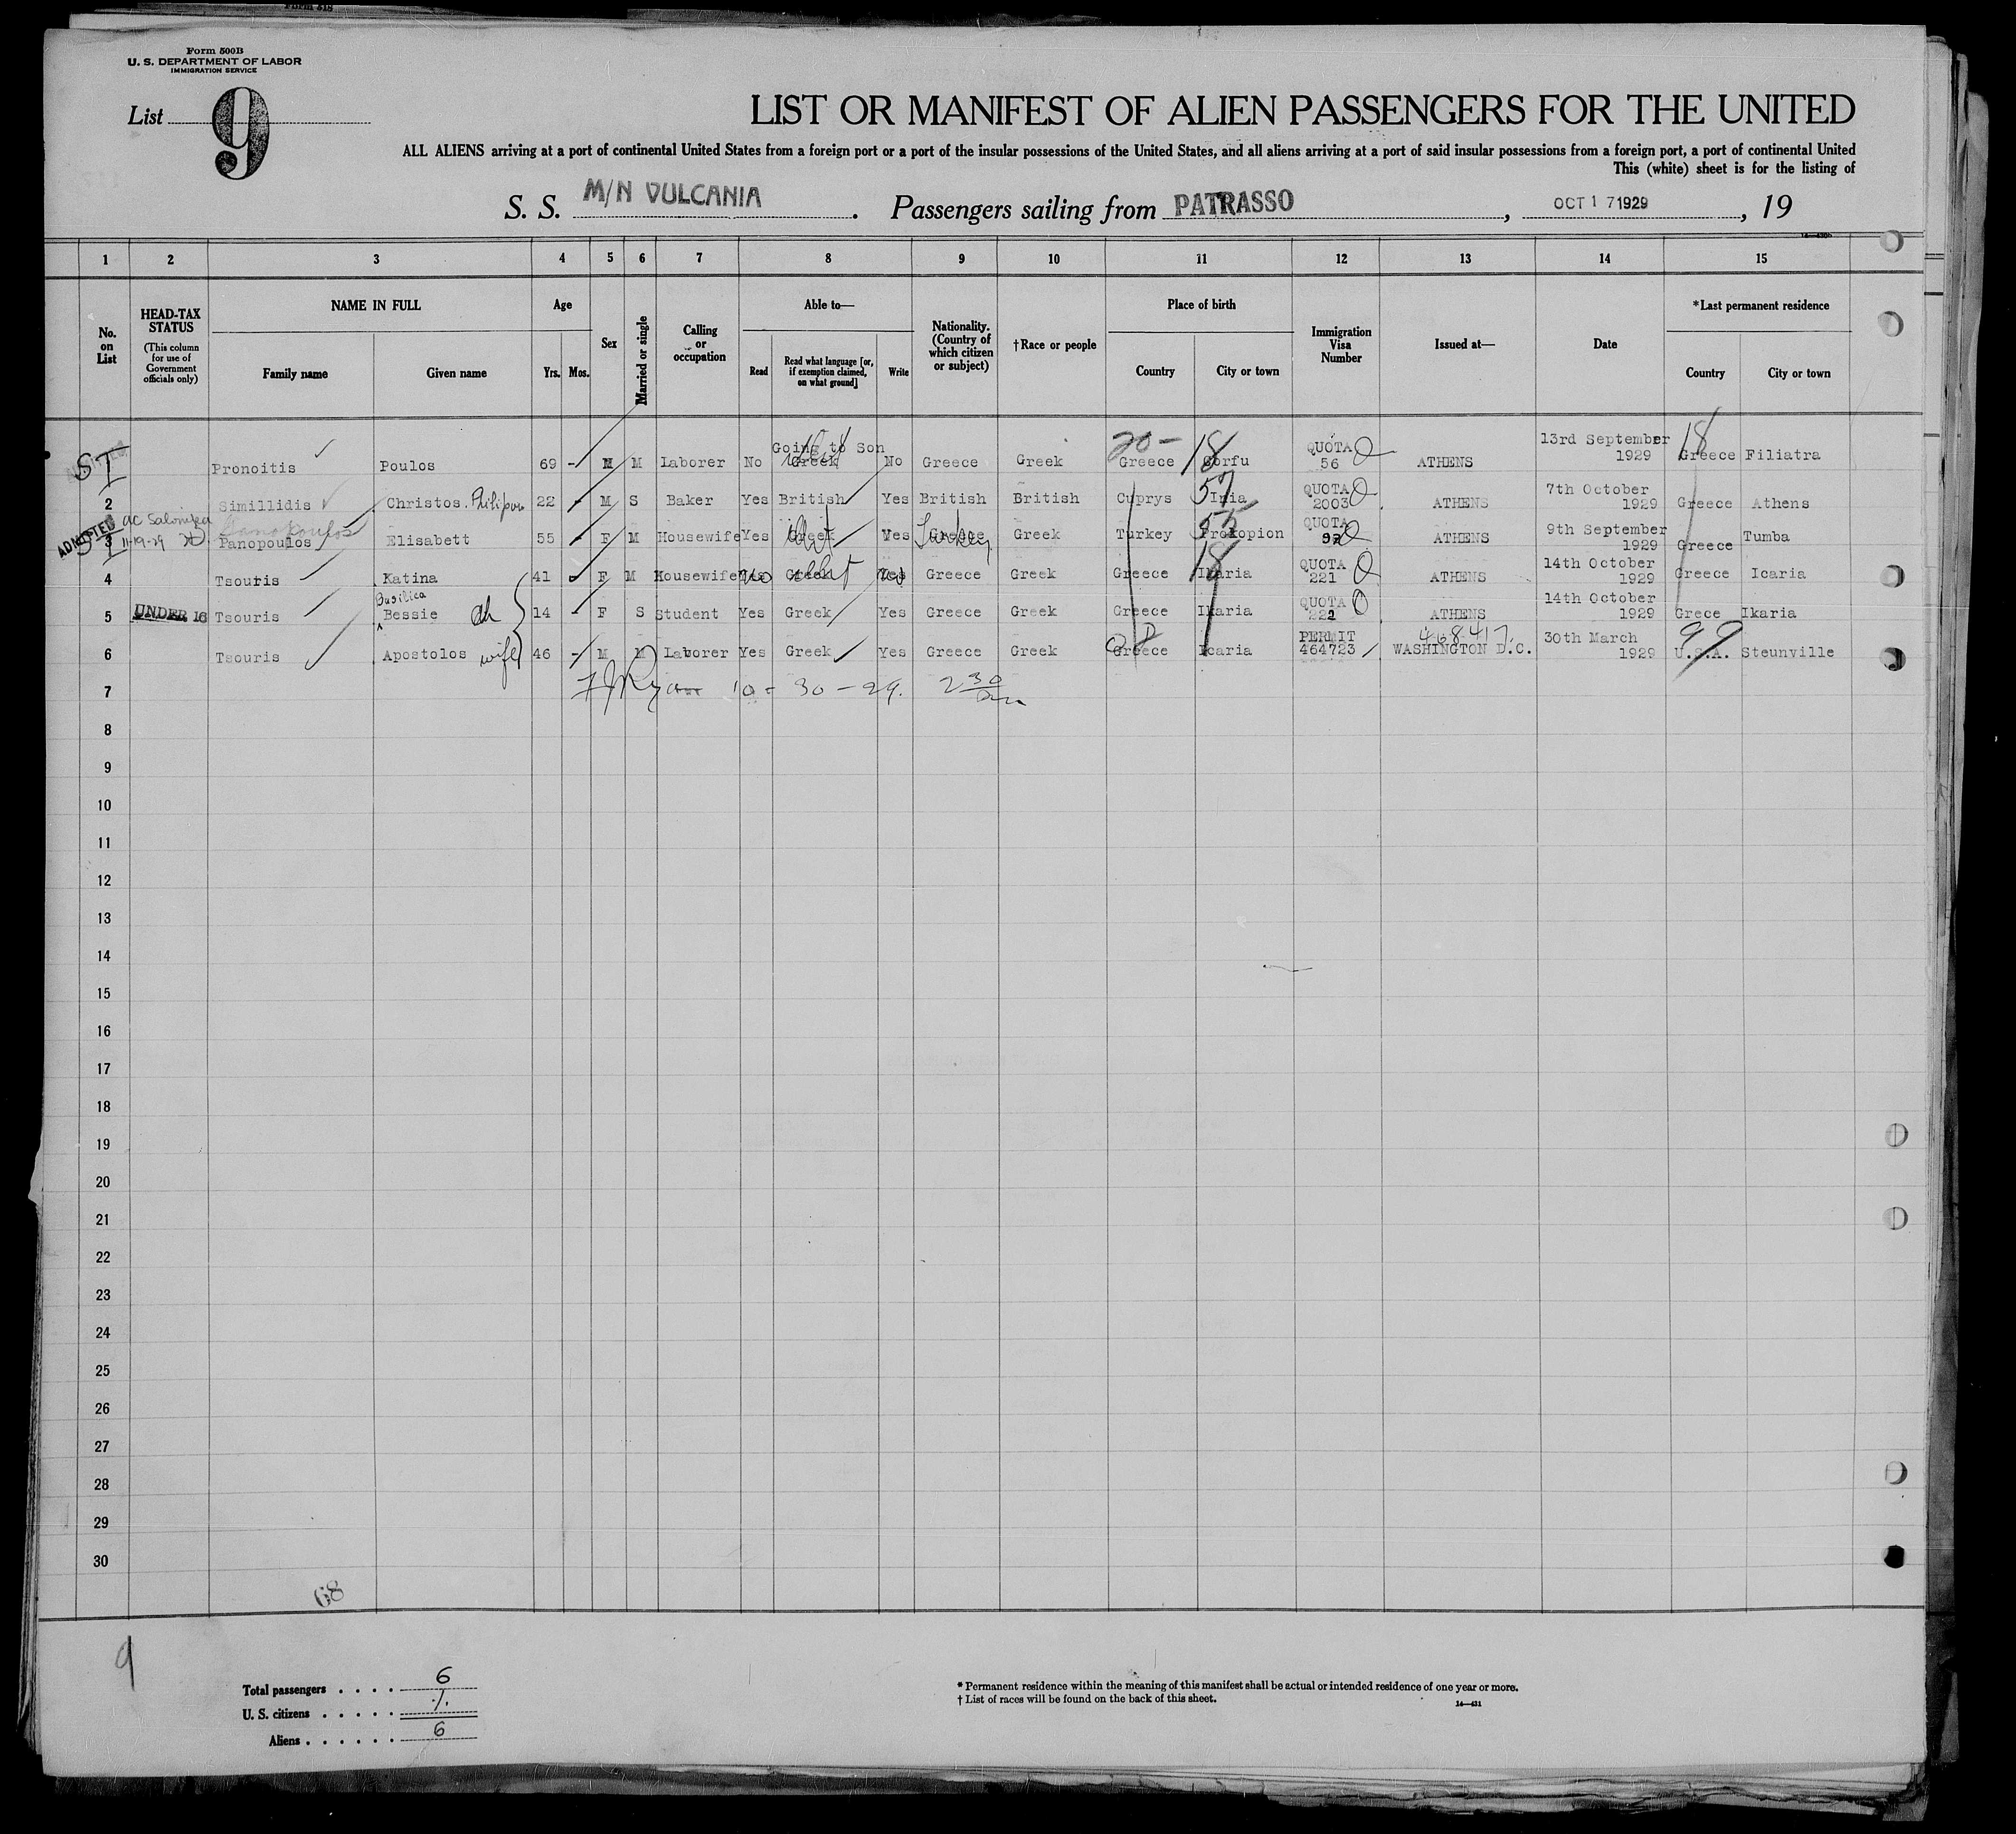 Form 500B
U. S. DEPARTMENT OF LABOR
IMMIGRATION SERVICE
List 9
LIST OR MANIFEST OF ALIEN PASSENGERS FOR THE UNITED
ALL ALIENS arriving at a port of continental United States from a foreign port or a port of the insular possessions of the United States, and all aliens arriving at a port of said insular possessions from a foreign port, a port of continental United
This (white) sheet is for the listing of
S. S. M/N VULCANIA. Passengers sailing from PATRASSO, OCT 1 7 1929, 19
1 2 3 4 5 6 7 8 9 10 11 12 13 14 15
No. on List
HEAD-TAX STATUS
(This column for use of Government officials only)
NAME IN FULL
Family name Given name
Age
Yrs. Mos.
Sex
Married or single
Calling or occupation
Able to—
Read
Read what language [or, if exemption claimed, on what ground]
Write
Nationality. (Country of which citizen or subject)
†Race or people
Place of birth
Country City or town
Immigration Visa Number
Issued at—
Date
*Last permanent residence
Country City or town
SI Pronoitis Poulos 69 - M M Laborer No Going to Son Greek No Greece Greek 20- Greece 18 Corfu QUOTA 56 ATHENS 13rd September 1929 18 Greece Filiatra
2 Simillidis Christos. 22 - M S Baker Yes British Yes British British Cuprys 57 Inia QUOTA 2003 ATHENS 7th October 1929 Greece Athens
ADMITTED 3 11-19-29 Panopoulos Elisabett 55 - F M Housewife Yes Greek Yes Greece Turkey Greek Turkey 55 Prokopion QUOTA 92 ATHENS 9th September 1929 Greece Tumba
4 Tsouris Katina 41 - F M Housewife No Greek Yes Greece Greek Greece 18 Ikaria QUOTA 221 ATHENS 14th October 1929 Greece Icaria
5 UNDER 16 Tsouris Basilica Bessie 14 - F S Student Yes Greek Yes Greece Greek Greece Ikaria QUOTA 222 ATHENS 14th October 1929 Grece Ikaria
6 Tsouris Apostolos wife 46 - M M Laborer Yes Greek Yes Greece Greek Greece Icaria PERMIT 464723 468417. WASHINGTON D.C. 30th March 1929 99 U.S.A. Steunville
7 10 - 30 - 29. 2 30
8
9
10
11
12
13
14
15
16
17
18
19
20
21
22
23
24
25
26
27
28
29
30
68
9
Total passengers . . . . 6
U. S. citizens . . . . .
Aliens . . . . . . 6
* Permanent residence within the meaning of this manifest shall be actual or intended residence of one year or more.
† List of races will be found on the back of this sheet.
14—431